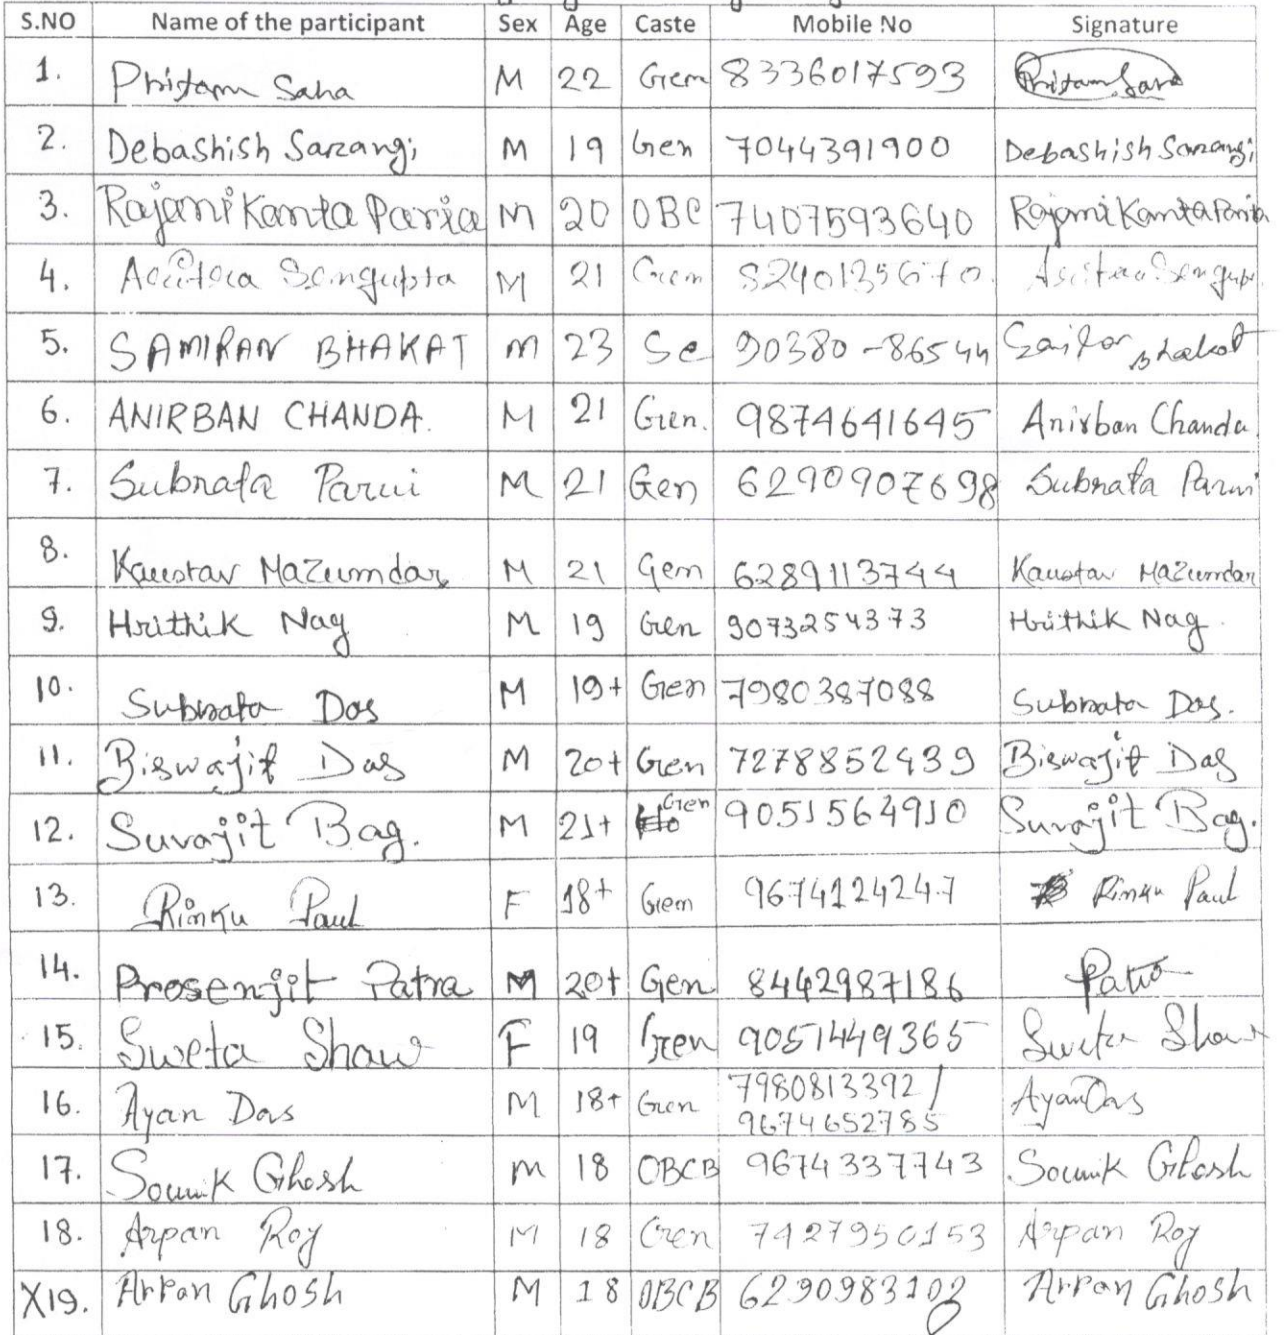 S.NO Name of the participant Sex Age Caste Mobile No Signature
1. Pritam Saha M 22 Gen 8336017593 Pritam Saha
2. Debashish Sarangi M 19 Gen 7044391900 Debashish Sarangi
3. Rajani Kanta Paria M 20 OBC 7407593640 Rajani Kanta Paria
4. Sengupta M 21 Gen
5. SAMIRAN BHAKAT M 23 Sc 90380-86544 Bhakat
6. ANIRBAN CHANDA. M 21 Gen. 9874641645 Anirban Chanda
7. Subrata Parui M 21 Gen 6290907698 Subrata Parui
8. Kaustav Mazumdar M 21 Gen 6289113744 Kaustav Mazumdar
9. Hrithik Nag M 19 Gen 9073254373 Hrithik Nag.
10. Subrata Das M 19+ Gen 7980387088 Subrata Das.
11. Biswajit Das M 20+ Gen 7278852439 Biswajit Das
12. Suvajit Bag. M 21+ Gen 9051564910 Suvajit Bag.
13. Rinku Paul F 18+ Gen 9674124247 Rinku Paul
14. Prosenjit Patra M 20+ Gen 8442987186 Patra
15. Sweta Shaw F 19 Gen 9051449365 Sweta Shaw
16. Ayan Das M 18+ Gen 7980813392/ Ayan Das
9674652785
17. Soumik Ghosh M 18 OBCB 9674337743 Soumik Ghosh
18. Arpan Roy M 18 Gen 7427950153 Arpan Roy
X19. Arpan Ghosh M 18 OBCB Arpan Ghosh